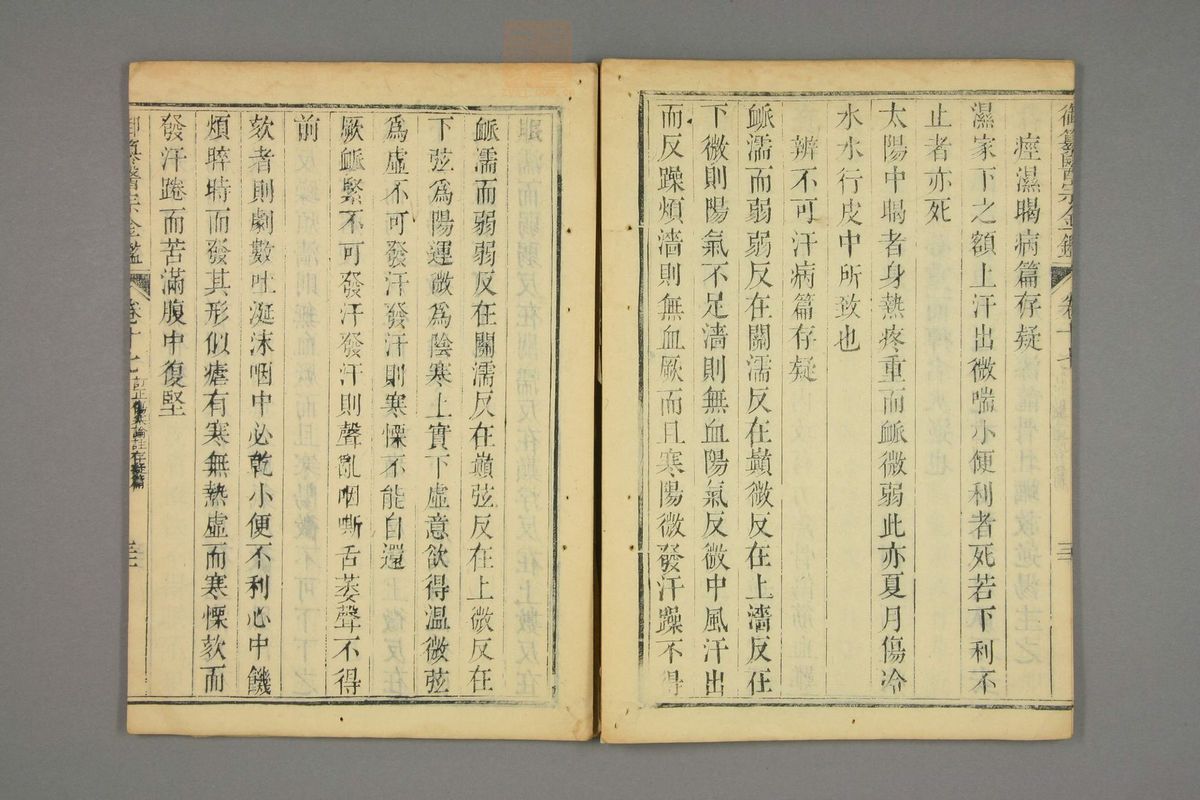 御纂醫宗金鑑 卷十七
痙濕暍病篇存疑
濕家下之額上汗出微喘小便利者死若下利不
止者亦死
太陽中暍者身熱疼重而脈微弱此亦夏月傷冷
水水行皮中所致也
辨不可汗病篇存疑
脈濡而弱弱反在關濡反在巔微反在上濇反在
下微則陽氣不足濇則無血陽氣反微中風汗出
而反躁煩濇則無血厥而且寒陽微發汗躁不得
脈濡而弱弱反在關濡反在巔弦反在上微反在
下弦爲陽運微爲陰寒上實下虛意欲得溫微弦
爲虛不可發汗發汗則寒慄不能自還
厥脈緊不可發汗發汗則聲亂咽嘶舌萎聲不得
前
欬者則劇數吐涎沫咽中必乾小便不利心中饑
煩晬時而發其形似瘧有寒無熱虛而寒慄欬而
發汗踡而苦滿腹中復堅
御纂醫宗金鑑 卷十七 訂正傷寒論註存疑篇